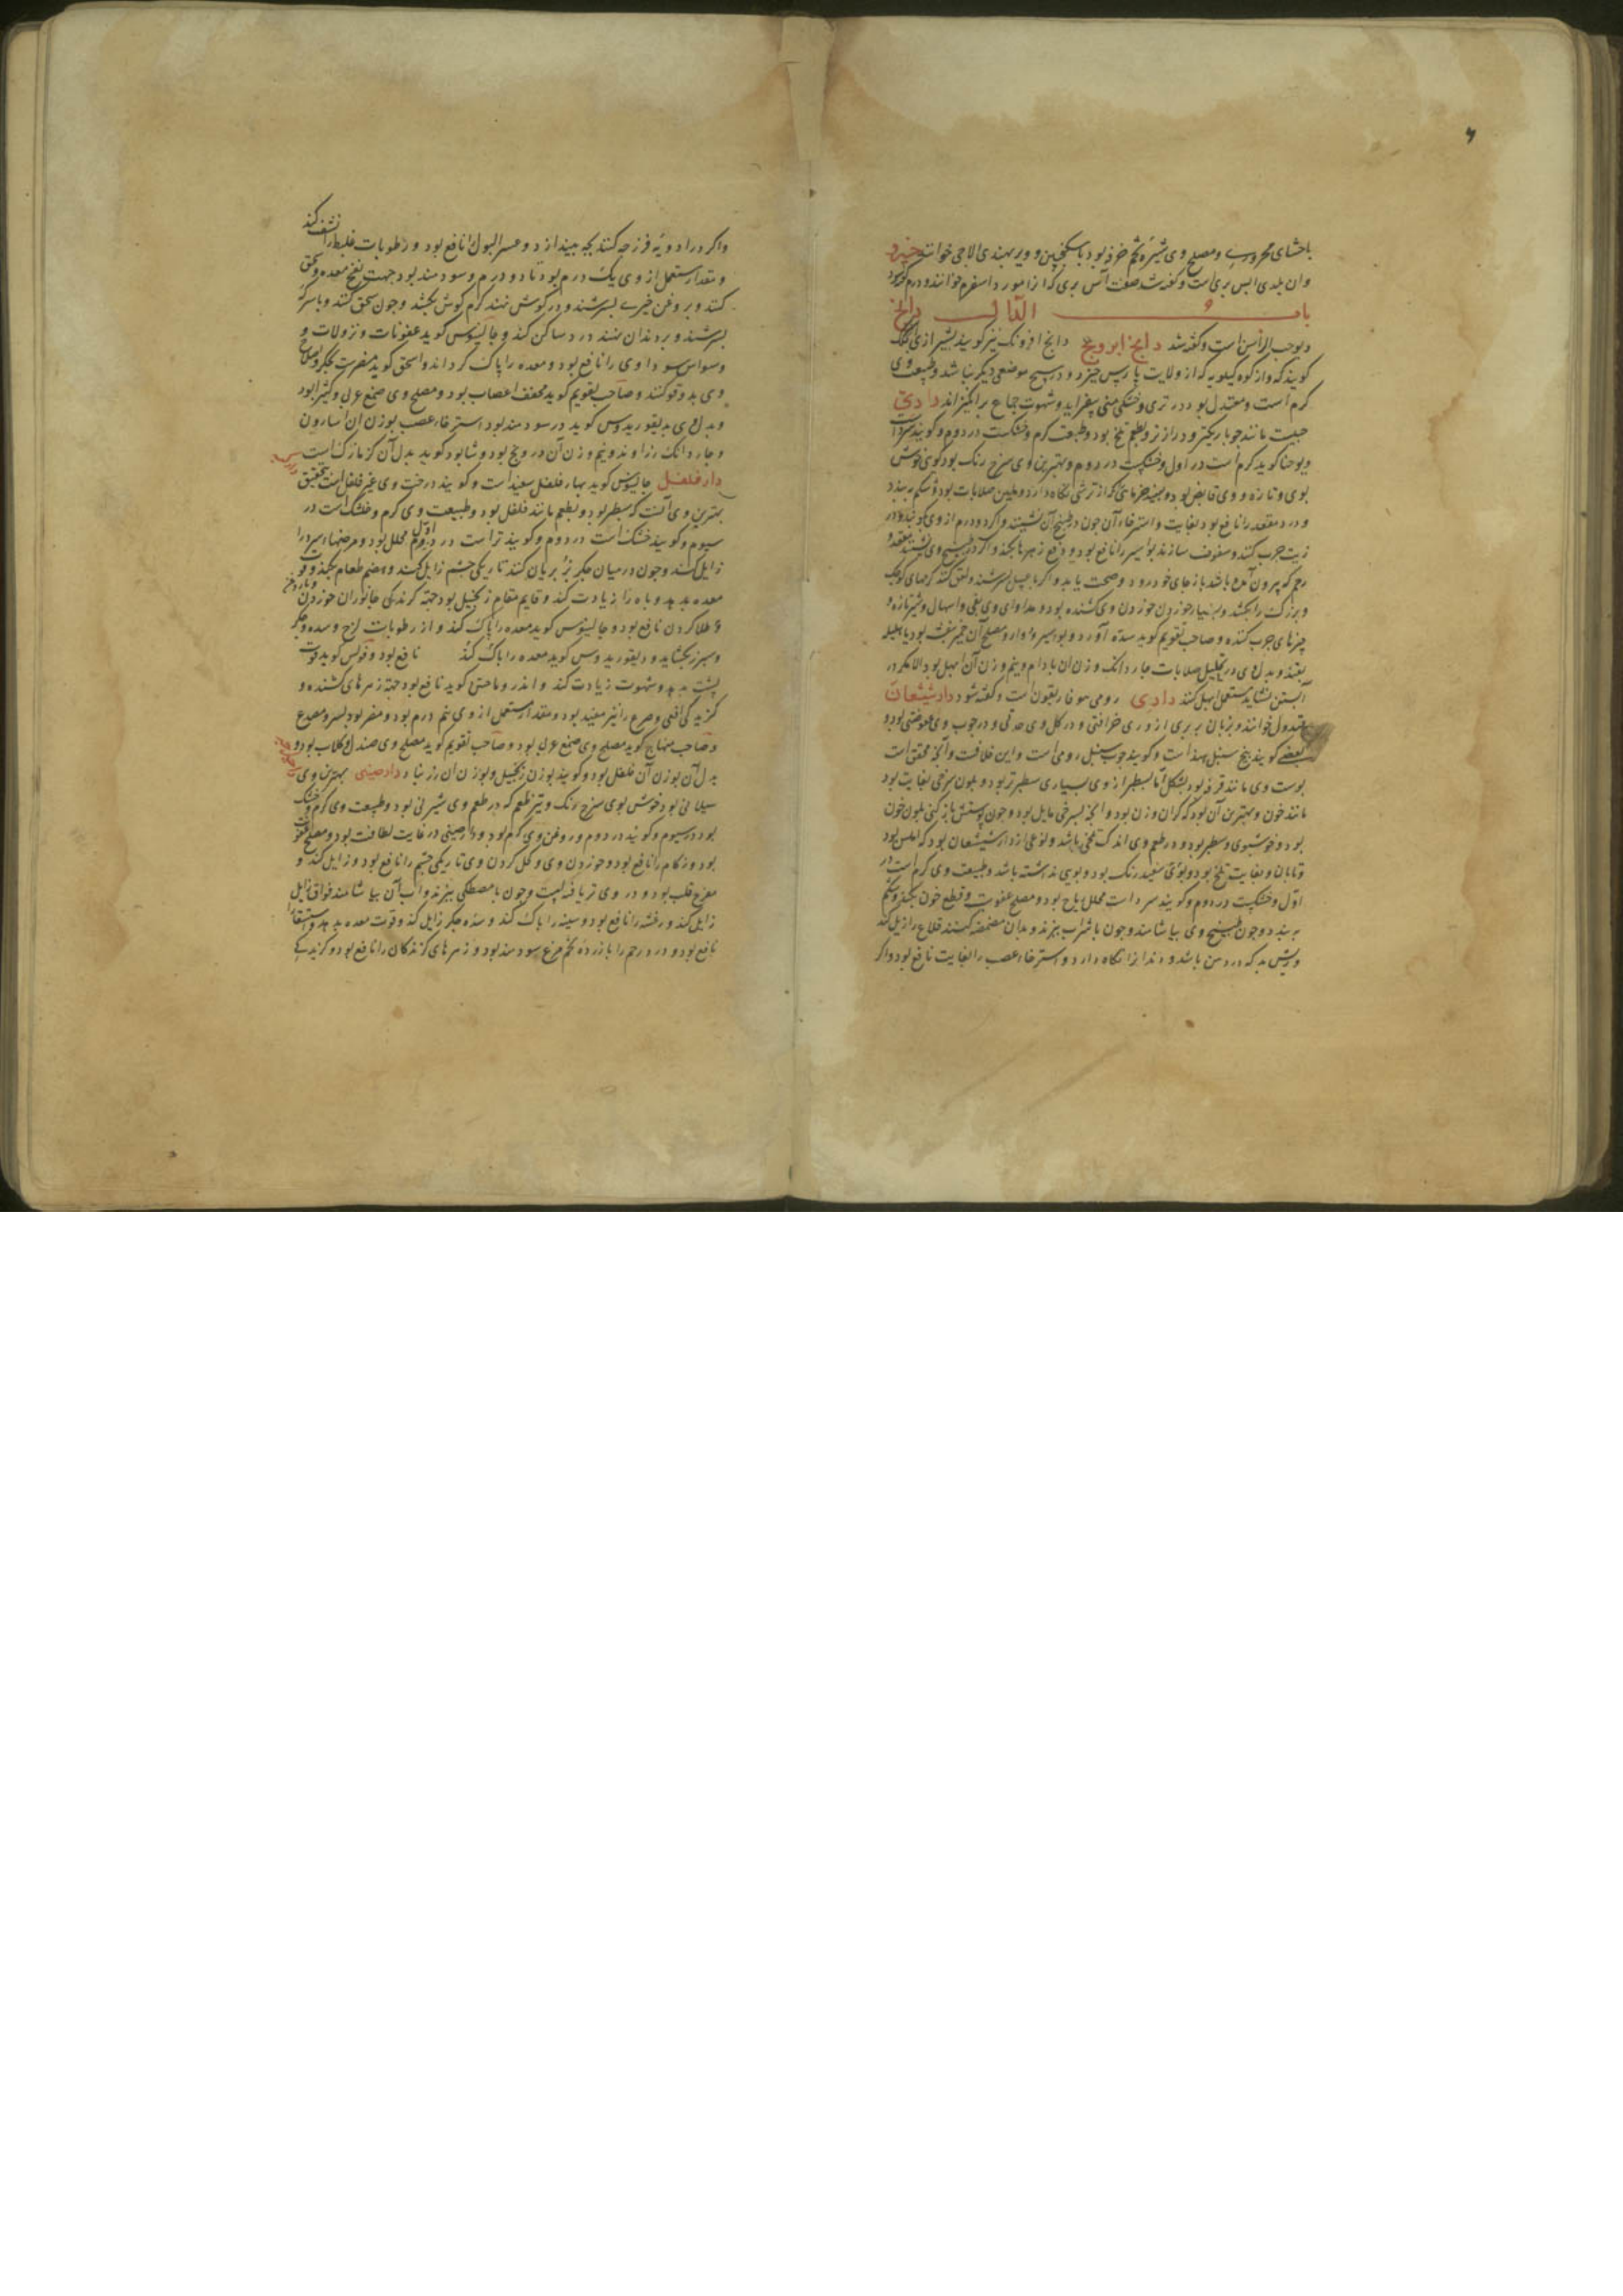 باحشای محرور و مصلح وی شیره تخم خرفه بود با سکنجبین و ویر بهندی الاچی خوانند
وان بلدی ابس بری است و گفته شد صفت آس بری که آنرا مورد اسفرم خوانند
باب الدال
دیوجب الرأس است و گفته شد دانج ابرونج دانج افرونک نیز گویند بشیرازی
گویند که واز کوه کیلویه که از ولایت پارس خیزد و در هیچ موضعی دیگر نباشد و طبیعت وی
گرم است و معتدل بود در تری و خشکی منی بیفزاید و شهوت جماع برانگیزاند دادی
حبیست مانند جو باریکتر و درازتر و بطعم تلخ بود و طبیعت گرم و خشکست در دوم و گویند سرد است
ویوحنا گوید گرم است در اول و خشکست در دوم و بهترین وی سرخ رنک بود کوی خوش
بوی و تازه و وی قابض بود و نبیذ خرمای که از ترشی نگاه دارد و ملین صلابات بود و شکم ببندد
و درد مقعد را نافع بود بغایت و استرخاء آن چون در طبیخ آن نشینند و اگر دو درم از وی
زیت چرب کنند و سفوف سازند بواسیر را نافع بود و دفع زهرها بکند و اگر در طبیخ وی نشینند مقعد و
رحم که بیرون آمده باشد باز جای خود رود و صحت یابد و اگر با عسل بسرشند و لعق کنند کرمهای کوچک
و بزرک را بکشد و بسیار خوردن خوردن وی کشنده بود و مداوای وی بقی و اسهال و شیر تازه و
چیزهای چرب کننده و صاحب تقویم گوید سده آورد و بواسیر و مصلح آن خمیر بنفشه بود یا هلیله
بقند و بدل وی در تحلیل صلابات چار دانک وزن ان بادام و نیم وزن آن ابهل بود الا مگر در
آبستن نشاید مستعمل ابهل کنند دادی رومی هو فاریقون است و گفته شود دارشیشعان
قندول خوانند و بزبان بربری ازوری خرافتی و در کل وی حدتی و در چوب وی عفوصتی بود و
بعضی گویند بیخ سنبل هندا ست و گویند چوب سنبل رومی است و این خلافست و آنچه محقق است
پوست وی مانند قرفه بود بشکل اما بسطبر از وی بسیاری سطبرتر بود و بلون سرخی بغایت بود
مانند خون و بهترین آن بود که گران وزن بود و انچه بسرخی مایل بود و چون پوستش باز کنی بلون خون
بود و خوشبوی و سطبر بود و در طعم وی اندک تلخی باشد و نوعی از دارشیشعان بود که املس بود
و تابان و بغایت تلخ بود و بلون سفید رنک بود و بویی نداشته باشد و طبیعت وی گرم است در
اول و خشکیست در دوم و گویند سرد است محلل ریاح بود و مصلح عفونت و قطع خون بکند و شکم
ببندد و چون طبیخ وی بیاشامند و چون با شراب بپزند و بدان مضمضه کنند قلاع را زایل کند
و ریش بد که در دهن باشد و دندان را نگاه دارد و استرخاء عصب را بغایت نافع بود و اگر
واگر در ادویه فرزجه کنند بچه بیندازد و عسر البول را نافع بود و رطوبات غلیظ را نشف کند
و مقدار مستعمل از وی یک درم بود تا دو درم و سودمند بود جهت نفخ معده و سحق
کنند و بروغن خیری بسرشند و در گوش نهند کرم گوش بکشد و چون سحق کنند و با سرکه
بسرشند و بر دندان نهند درد ساکن کند و جالینوس گوید عفونات و نزولات و
وسواس سوداوی را نافع بود و معده را پاک گرداند و اسحق گوید مضرت بجگر و اصلاح
وی بدوقو کنند و صاحب تقویم گوید مخفف اعصاب بود و مصلح وی صمغ عربی و کثیرا بود
و بدل وی دیسقوریدوس گوید در سودمند بود استرخاء عصب بوزن ان اسارون
و چار دانک زراوند و نیم وزن آن درونج بود و شاپور گوید بدل آن کزمازک است
دار فلفل جالینوس گوید بهار فلفل سفید است و گویند درخت وی غیر فلفل است بتحقیق
بهترین وی آنست که سطبر بود و بطعم مانند فلفل بود و طبیعت وی گرم و خشک است در
سیوم و گویند خشک است در دوم و گویند تر است در اول محلل بود و مرضهاء سرد را
زایل کند و چون در میان جگر بز بریان کنند تاریکی چشم زایل کند و هضم طعام بکند و قوة
معده بدهد و باه را زیادت کند و قایم مقام زنجبیل بود جهة گزندگی جانوران خوردن
و طلا کردن نافع بود و جالینوس گوید معده را پاک کند و از رطوبات لزج و سده جگر
و سپرز بگشاید و دیسقوریدوس گوید معده را پاک کند نافع بود و فولس گوید قوت
پشت بدهد و شهوت زیادت کند و اندروماخس گوید نافع بود جهة زهرهای کشنده و
گزیدگی افعی و صرع را نیز مفید بود و مقدار مستعمل از وی نیم درم بود و مضر بود بسر و مصدع
و صاحب منهاج گوید مصلح وی صمغ عربی بود و صاحب تقویم گوید مصلح وی صندل و گلاب بود و
بدل آن بوزن آن فلفل بود و گویند بوزن زنجبیل و بوزن ان زرنباد دارصینی بهترین وی
سیلانی بود خوش بوی سرخ رنک و تیز طعم که در طعم وی شیرینی بود و طبیعت وی گرم و خشک
بود در سیوم و گویند در دوم و روغن وی گرم بود و دارصینی در غایت لطافت بود و مصلح
بود و زکام را نافع بود و خوردن وی و کحل کردن وی تاریکی چشم را نافع بود و زایل کند و
مفرح قلب بود و در وی تریاقیه است و چون با مصطکی بپزند و آب آن بیاشامند فواق زایل
زایل کند و رعشه را نافع بود و سینه را پاک کند و سده جگر زایل کند و قوت معده بدهد و استسقا را
نافع بود و درد رحم را با زرده تخم مرغ سودمند بود و زهرهای گزندگان را نافع بود و گزیدگی